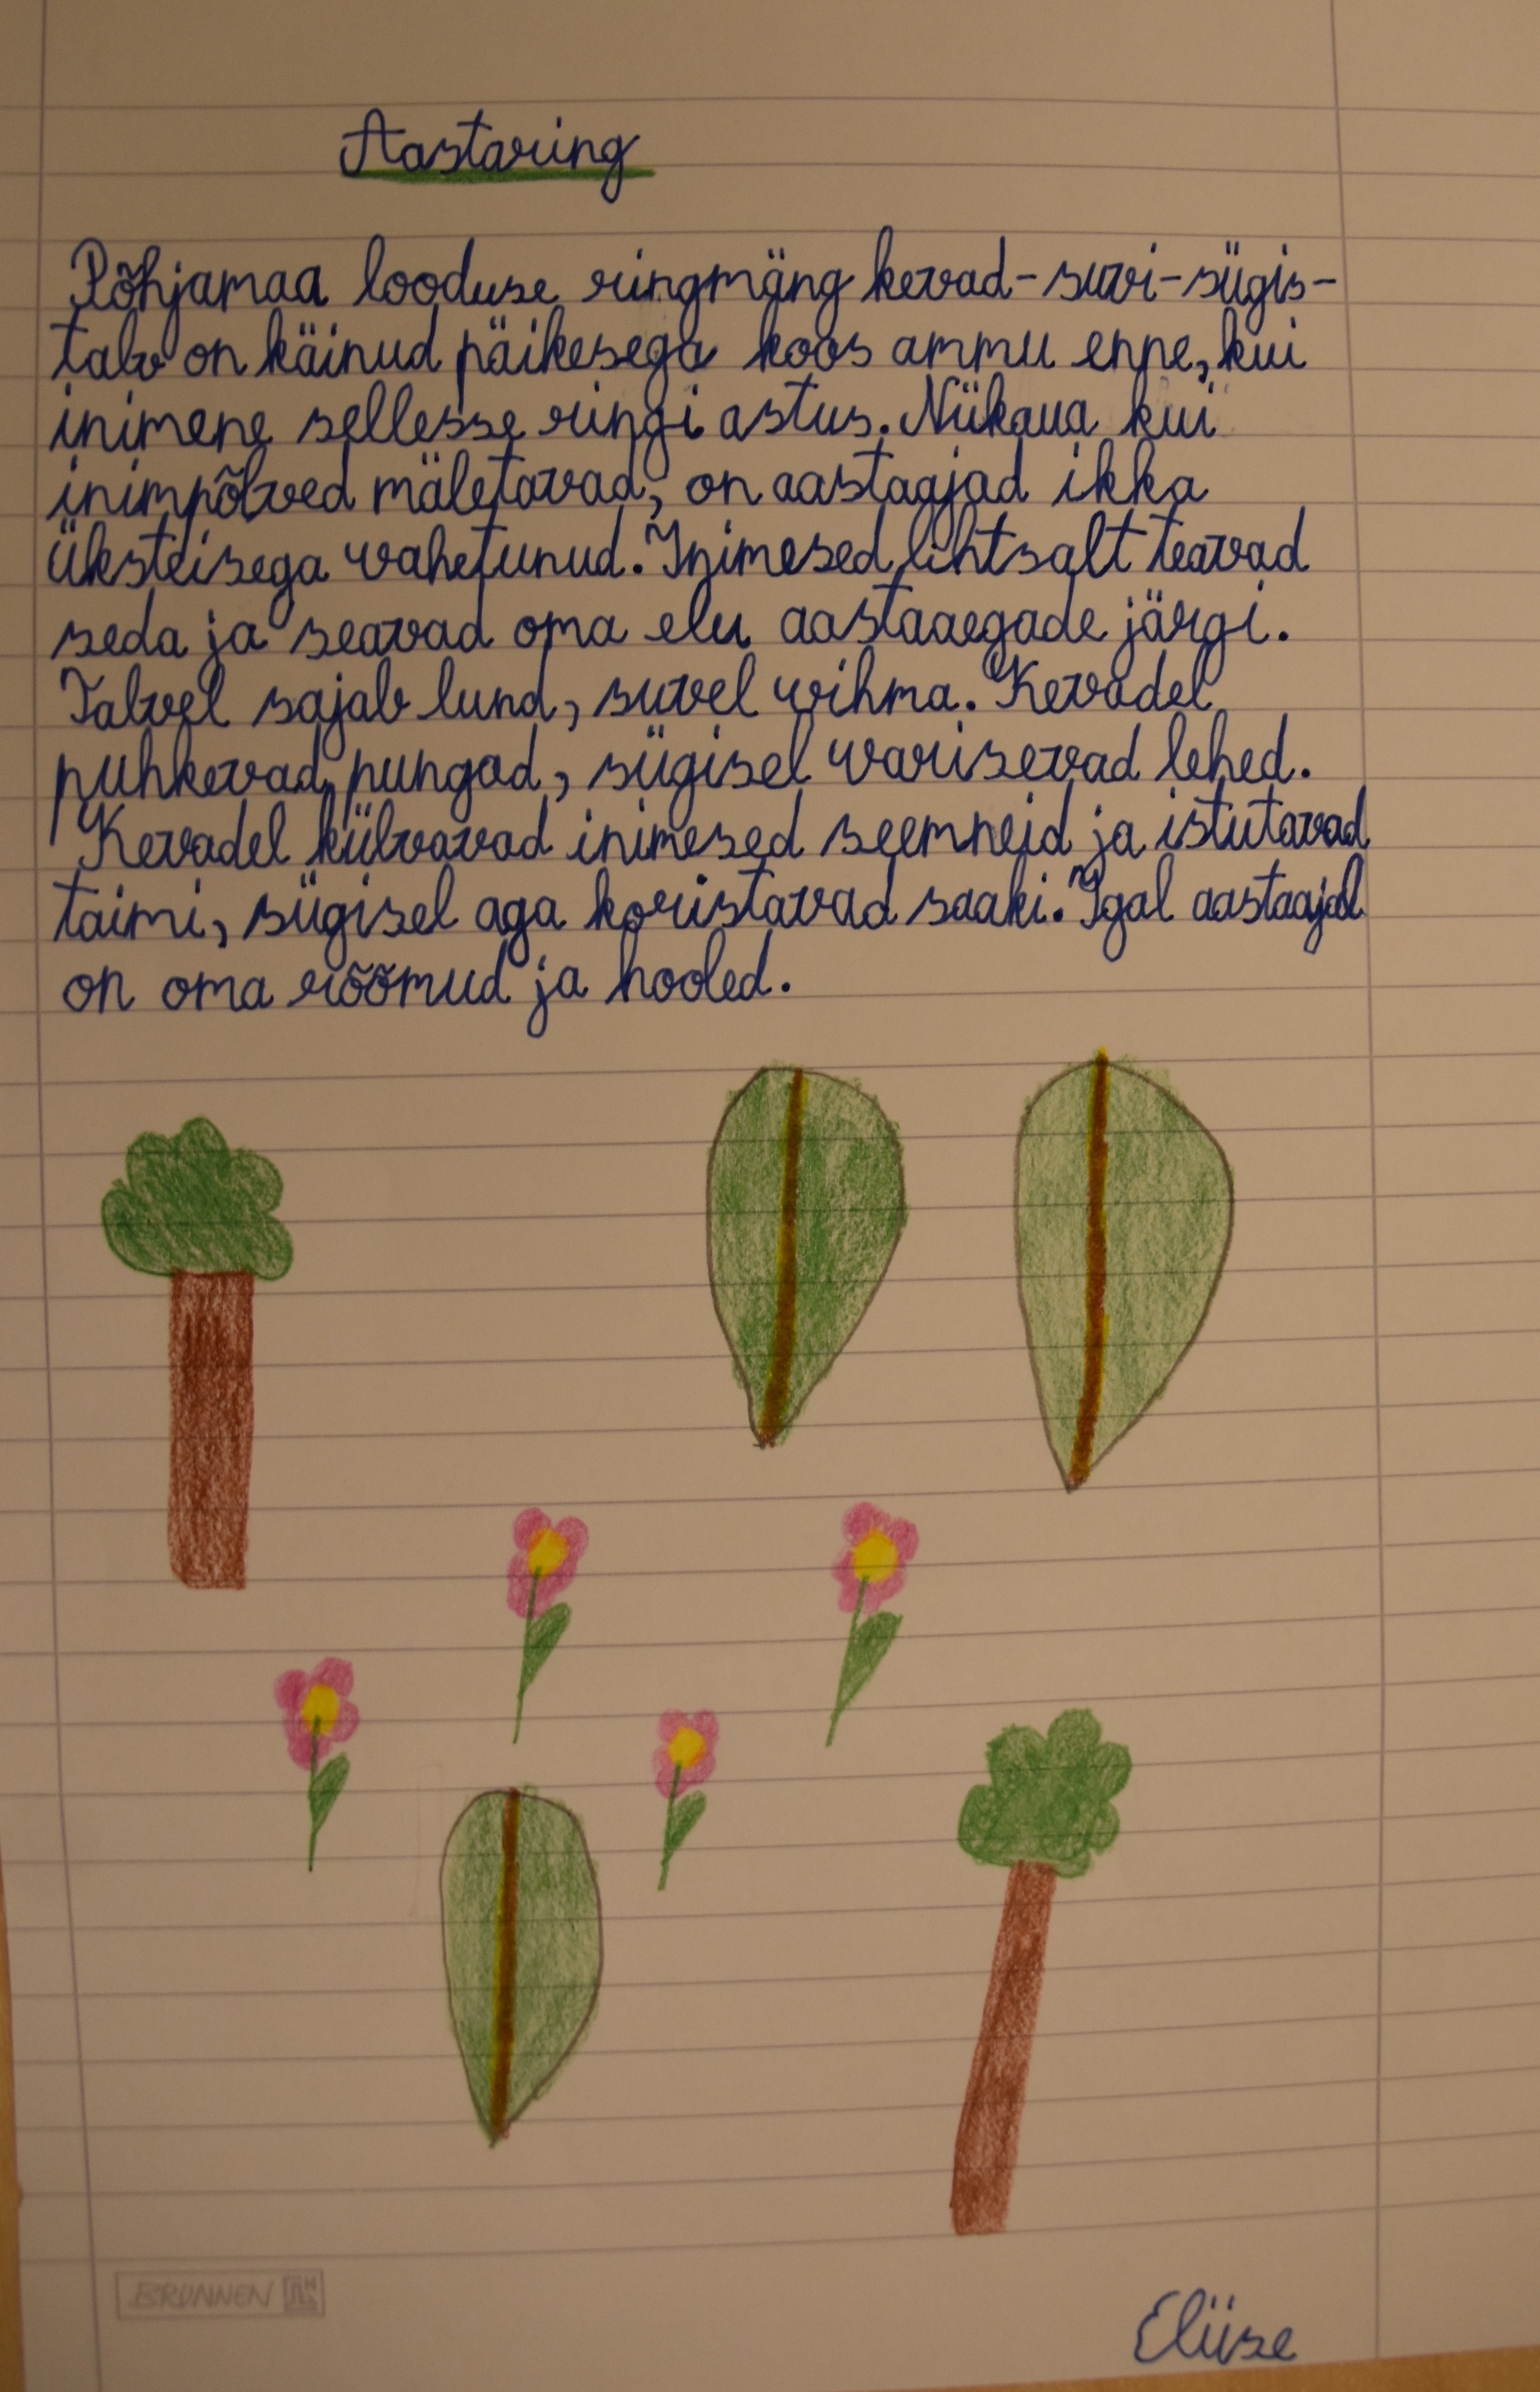 Aastaring
Põhjamaa looduse ringmäng kevad-suvi-sügis-
talv on käinud päikesega koos ammu enne, kui
inimene sellesse ringi astus. Niikaua kui
inimpõlved mäletavad, on aastaajad ikka
üksteisega vahetunud. Inimesed lihtsalt teavad
seda ja seavad oma elu aastaaegade järgi.
Talvel sajab lund, suvel vihma. Kevadel
puhkevad pungad, sügisel varisevad lehed.
Kevadel külvavad inimesed seemneid ja istutavad
taimi, sügisel aga koristavad saaki. Igal aastaajal
on oma rõõmud ja hooled.
BRUNNEN
Eliise